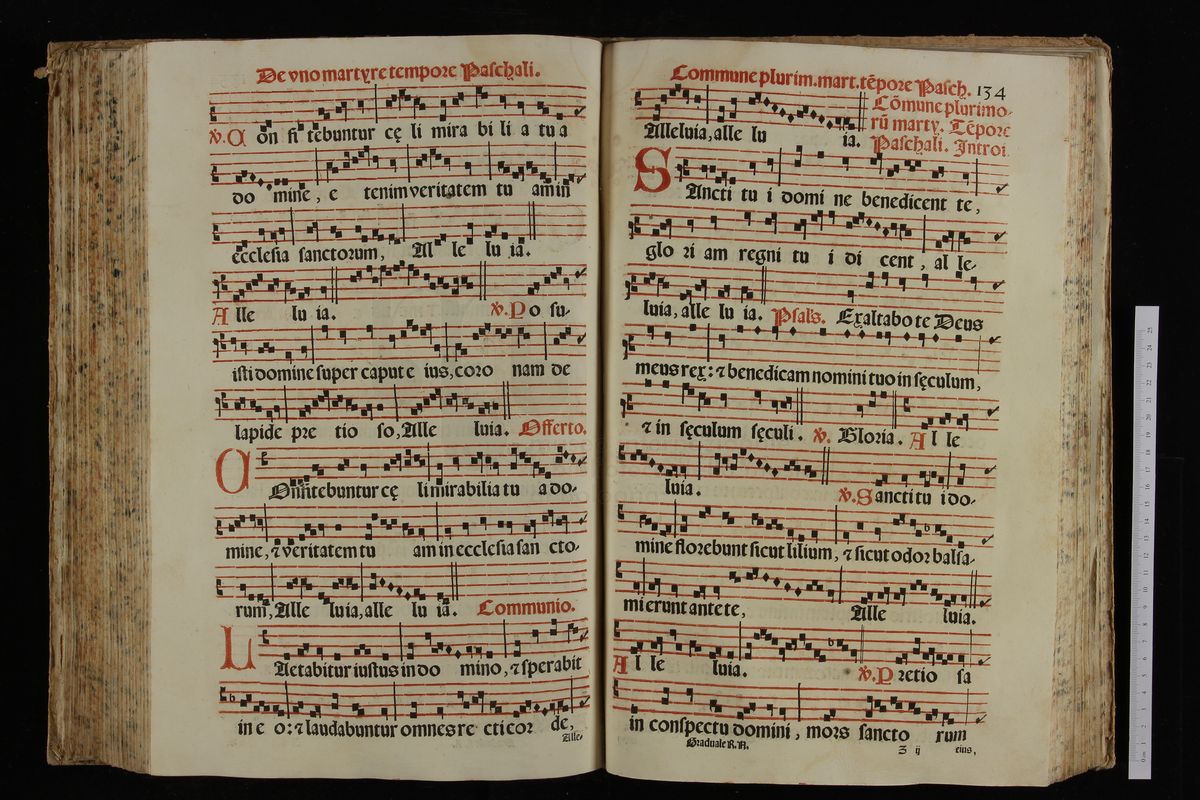 De vno martyre tempore Paschali.
℣. C on fi tebuntur cę li mira bi li a tu a
do mine, e tenim veritatem tu am in
ecclesia sanctorum, Al le lu ia.
A lle lu ia. ℣. P o su-
isti domine super caput e ius, coro nam de
lapide pre tio so, Alle luia. Offerto.
C Onfitebuntur cę li mirabilia tu a do-
mine, ⁊ veritatem tu am in ecclesia san cto-
rum, Alle luia, alle lu ia. Communio.
L Aetabitur iustus in do mino, ⁊ sperabit
in e o: ⁊ laudabuntur omnes re cti cor de,
Alle-
Commune plurim. mart. tẽpore Pasch. 134
Alleluia, alle lu ia.
Cõmune plurimo-
rũ marty. Tẽpore
Paschali. Introi.
S Ancti tu i domi ne benedicent te,
glo ri am regni tu i di cent, al le-
luia, alle lu ia. Psal's. Exaltabo te Deus
meus rex: ⁊ benedicam nomini tuo in sęculum,
⁊ in sęculum sęculi. ℣. Gloria. A l le
luia. ℣. S ancti tu i do-
mine florebunt sicut lilium, ⁊ sicut odor balsa-
mi erunt ante te, Alle luia.
A l le luia. ℣. P retio sa
in conspectu domini, mors sancto rum
Graduale R. A. Z ij eius,